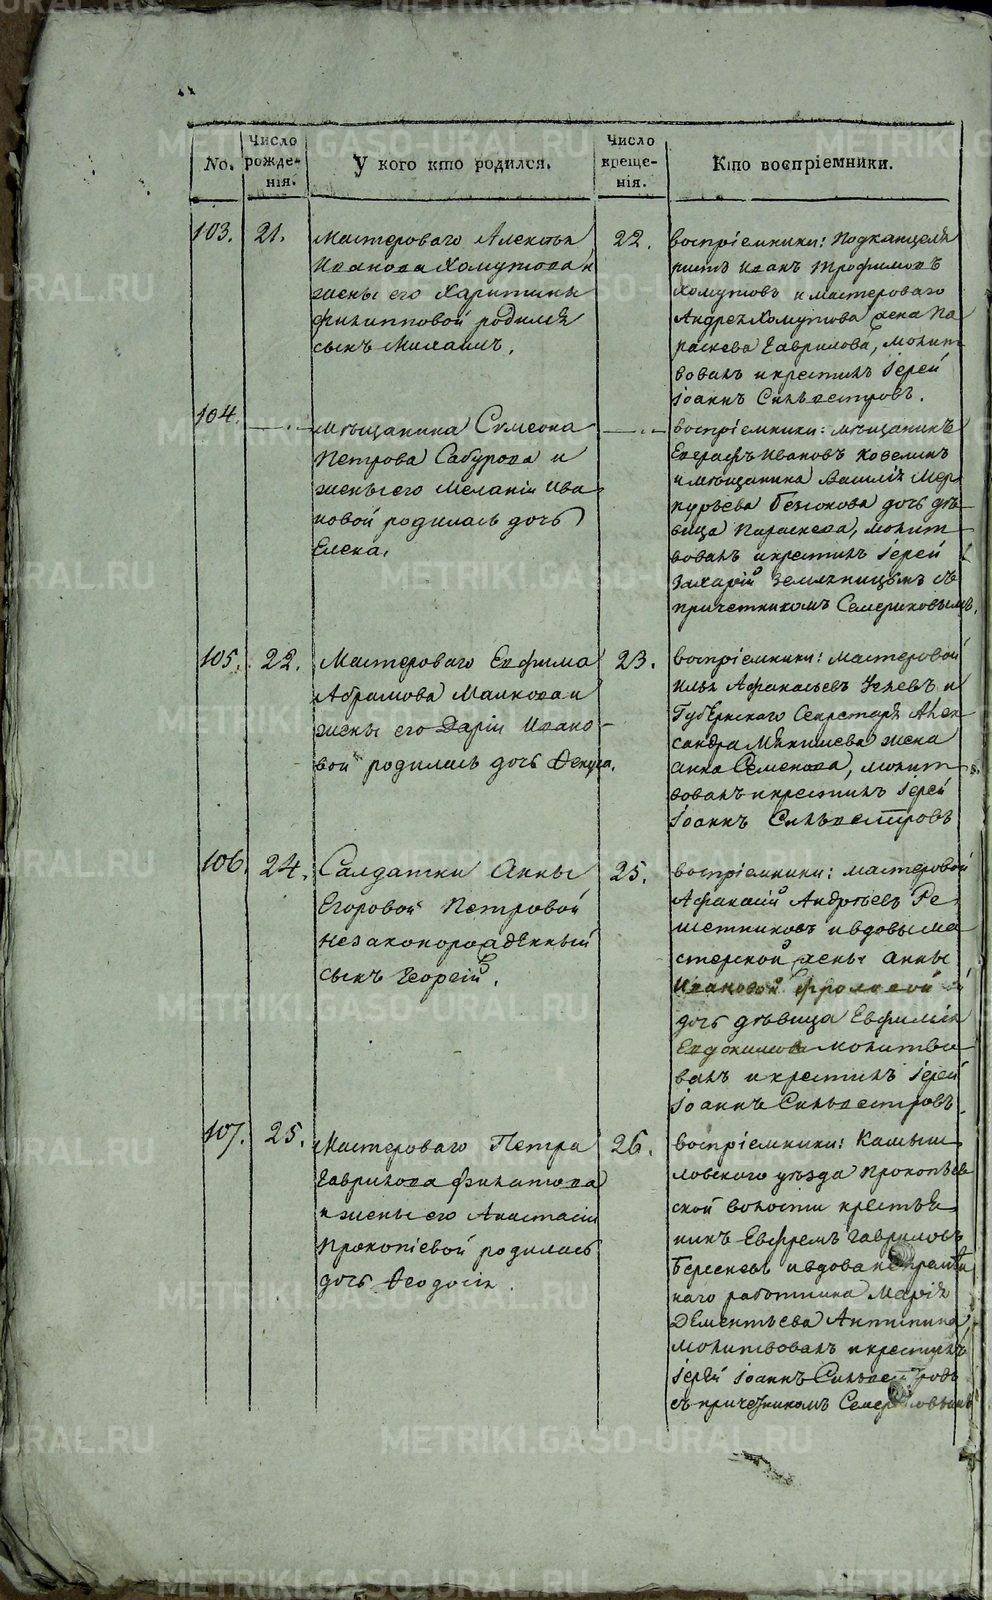 No.
Число рожде- нія.
У кого кто родился.
Число креще- нія.
Кто воспріемники.
103.
21.
Мастероваго Алексѣя
Иванова Хомутова и
жены его Харитины
Филипповой родился
сынъ Михаилъ.
22.
воспріемники: Подканцеля
ристъ Иванъ Трофимовъ
Хомутовъ и мастероваго
Андрея Хомутова жена Па
раскева Гаврилова, молит
вовалъ и крестилъ Іерей
Іоаннъ Сильвестровъ.
104.
— „ —
мѣщанина Симеона
Петрова Сабурова и
жены его Меланіи Ива
новой родилась дочь
Елена.
— „ —
воспріемники: мѣщанинъ
Евграфъ Ивановъ Козелинъ
и мѣщанина Василія Мер
курьева дочь дѣ
вица Параскева, молит
вовалъ и крестилъ Іерей
Захарій Земляницынъ съ
причетникомъ Семериковымъ.
105.
22.
Мастероваго Евфима
Абрамова Малкова и
жены его Даріи Ивано-
вой родилась дочь Фекула.
23.
воспріемники: мастеровой
Илья Афанасьевъ и
Губернскаго Секретаря Алек
сандра Мякишева жена
Анна Семенова, молит
вовалъ и крестилъ Іерей
Іоаннъ Сильвестровъ
106.
24.
Салдатки Анны
Егоровой Петровой
незаконорожденный
сынъ Георгій.
25.
воспріемники: мастеровой
Афанасій Андреевъ Ре
шетниковъ и вдовы ма
стерской жены Анны
Ивановой Фроловой
дочь дѣвица Евфимія
Евдокимова молитво
валъ и крестилъ Іерей
Іоаннъ Сильвестровъ.
107.
25.
Мастероваго Петра
Гаврилова Филатова
и жены его Анастасіи
Прокопіевой родилась
дочь Феодосія.
26.
воспріемники: Камыш
ловскаго уѣзда Прокопьев
ской волости крестья
нинъ Евфремъ Гавриловъ
Береневъ и вдова непремѣн
наго работника Марія
Дементьева Антипина,
молитвовалъ и крестилъ
Іерей Іоаннъ Сильвестровъ
съ причетникомъ Семериковымъ
METRIKI.GASO-URAL.RU